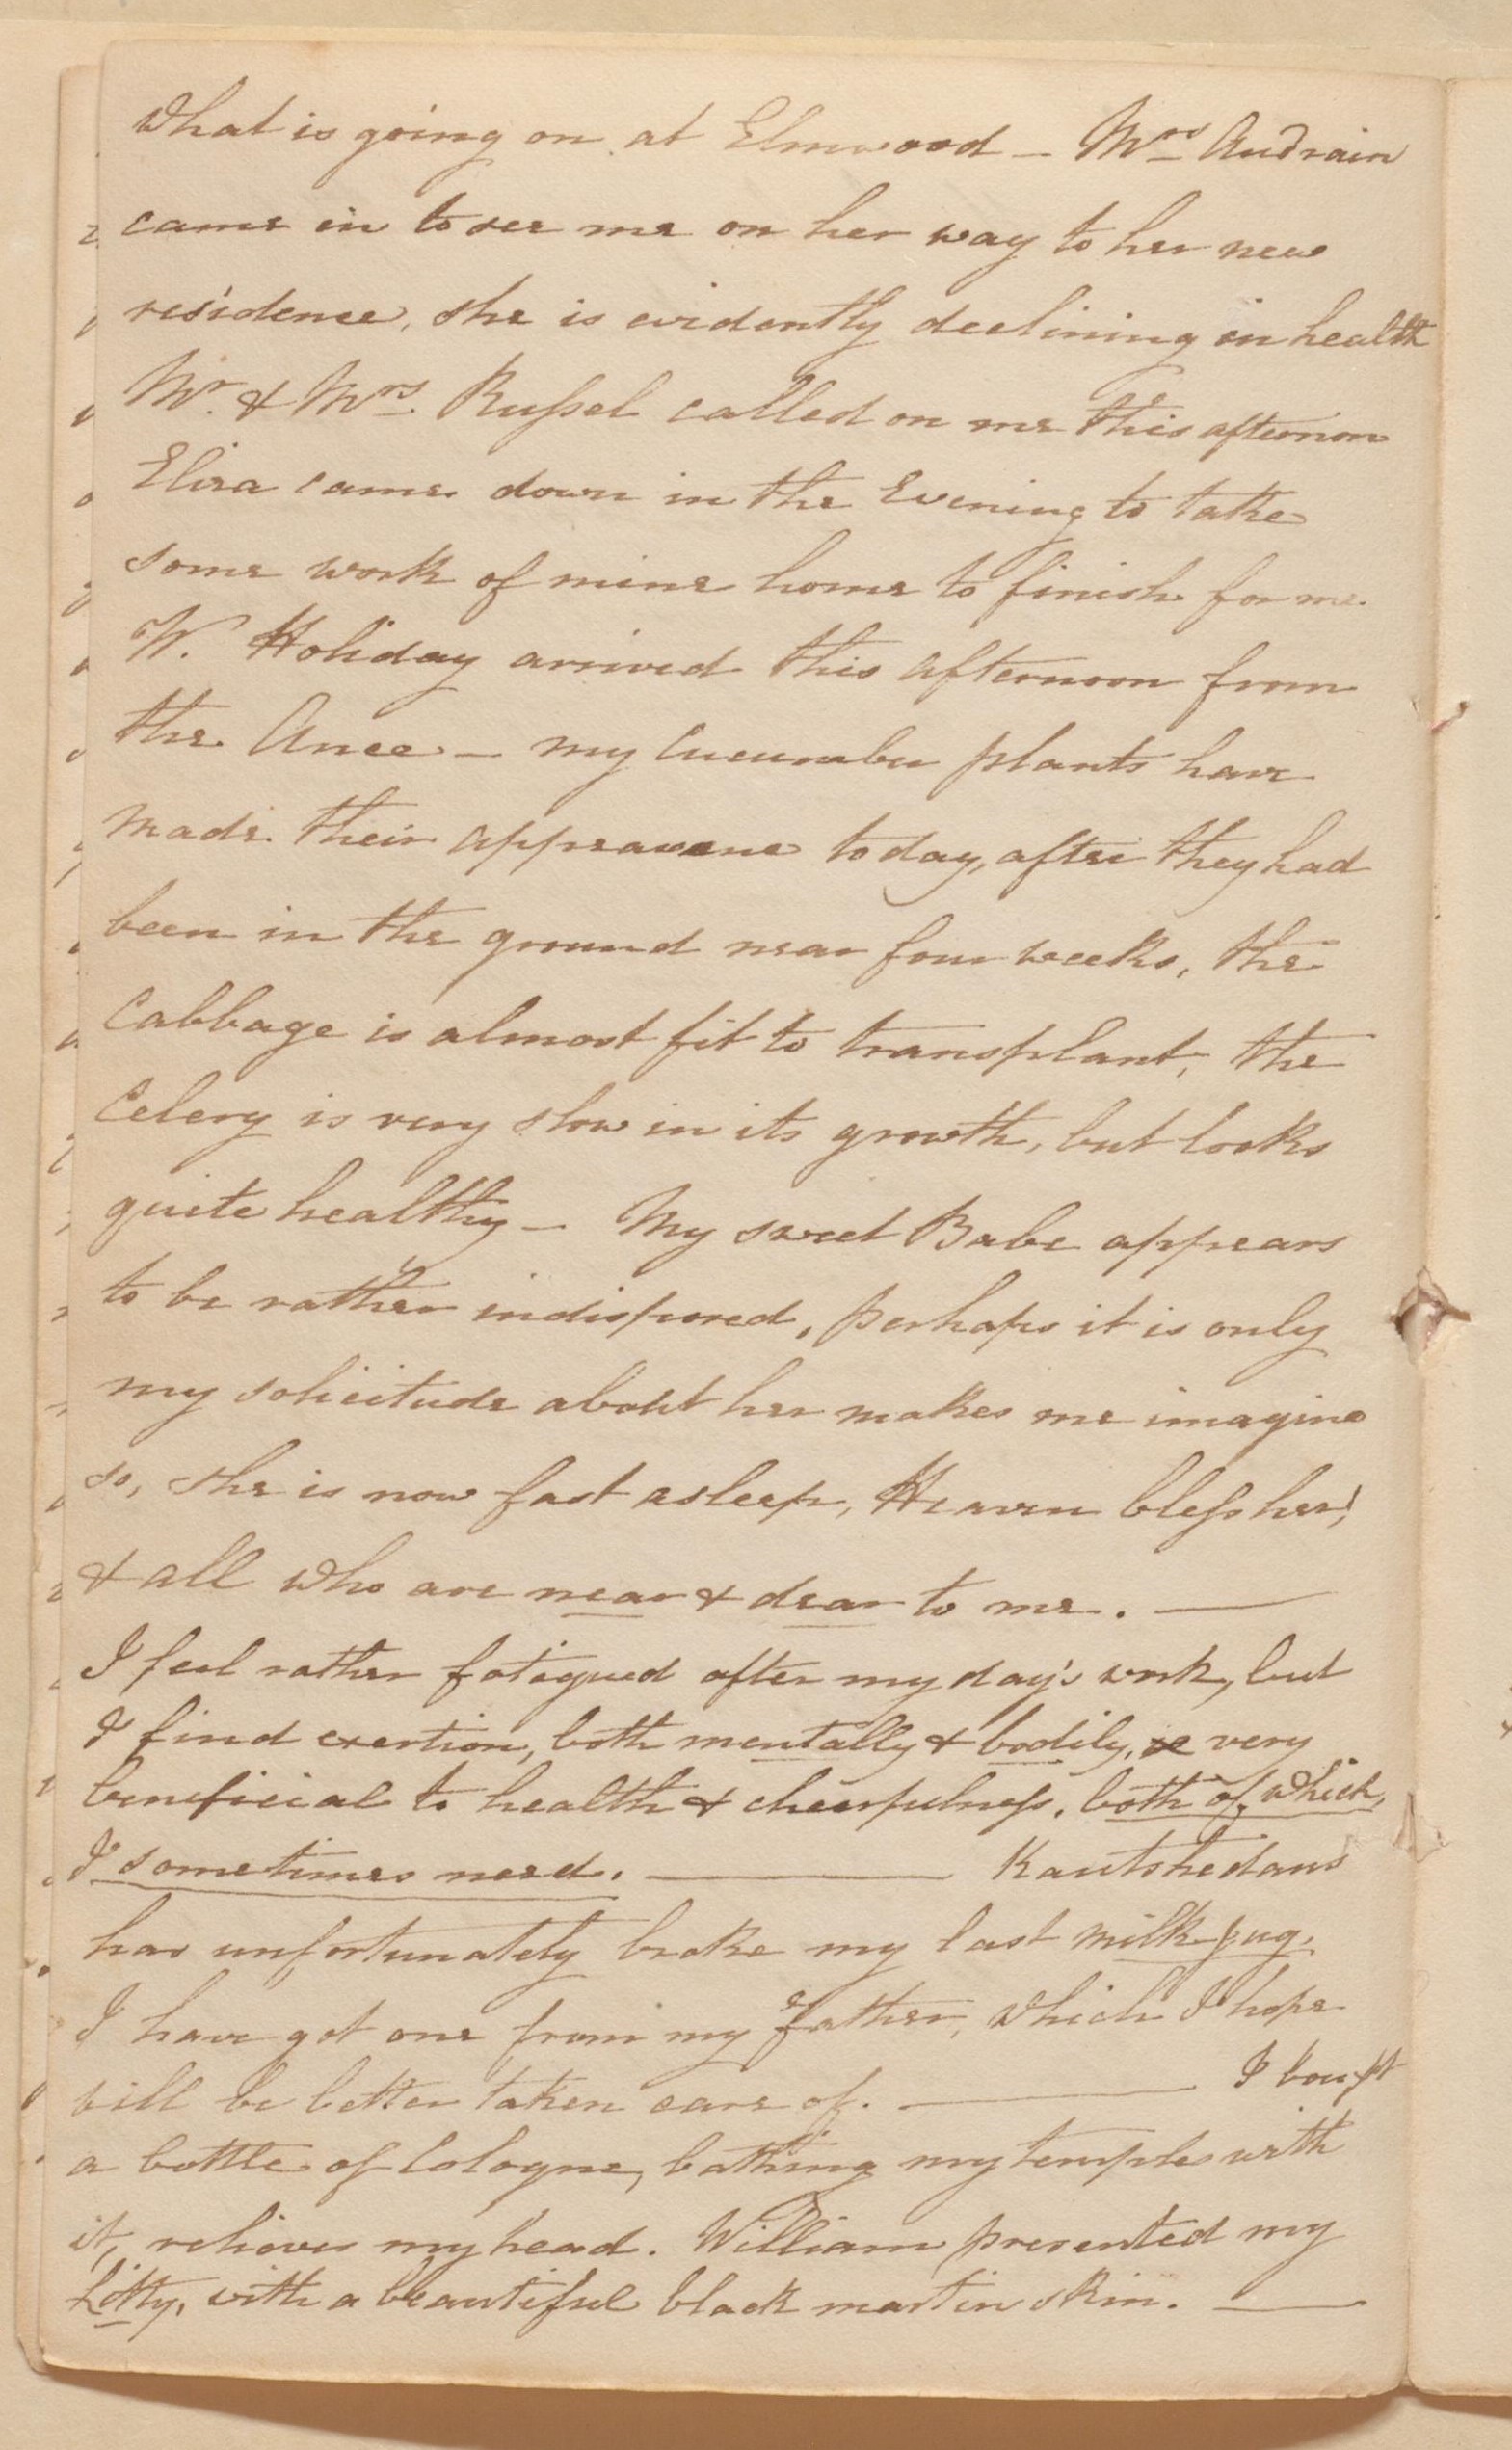 What is going on at Elmwood — Mrs Audrain
came in to see me on her way to her new
residence, she is evidently declining in health
Mr. & Mrs. Russel called on me this afternoon
Eliza came down in the Evening to take
some work of mine home to finish for me.
W. Holiday arrived this afternoon from
the Ance — my Cucumber plants have
made their appearance today, after they had
been in the ground near four weeks, the
Cabbage is almost fit to transplant, the
Celery is very slow in its growth, but looks
quite healthy — My sweet Babe appears
to be rather indisposed, perhaps it is only
my solicitude about her makes me imagine
so, she is now fast asleep, Heaven bless her,
& all who are near & dear to me. —
I feel rather fatigued after my day's work, but
I find exertion, both mentally & bodily, very
beneficial to health & cheerfulness, both of which,
I sometimes need. — Kautshedaus
has unfortunately broke my last milk jug.
I have got one from my Father, which I hope
will be better taken care of. — I bought
a bottle of Cologne, bathing my temples with
it, relieves my head. William presented my
Litty, with a beautiful black martin skin. —